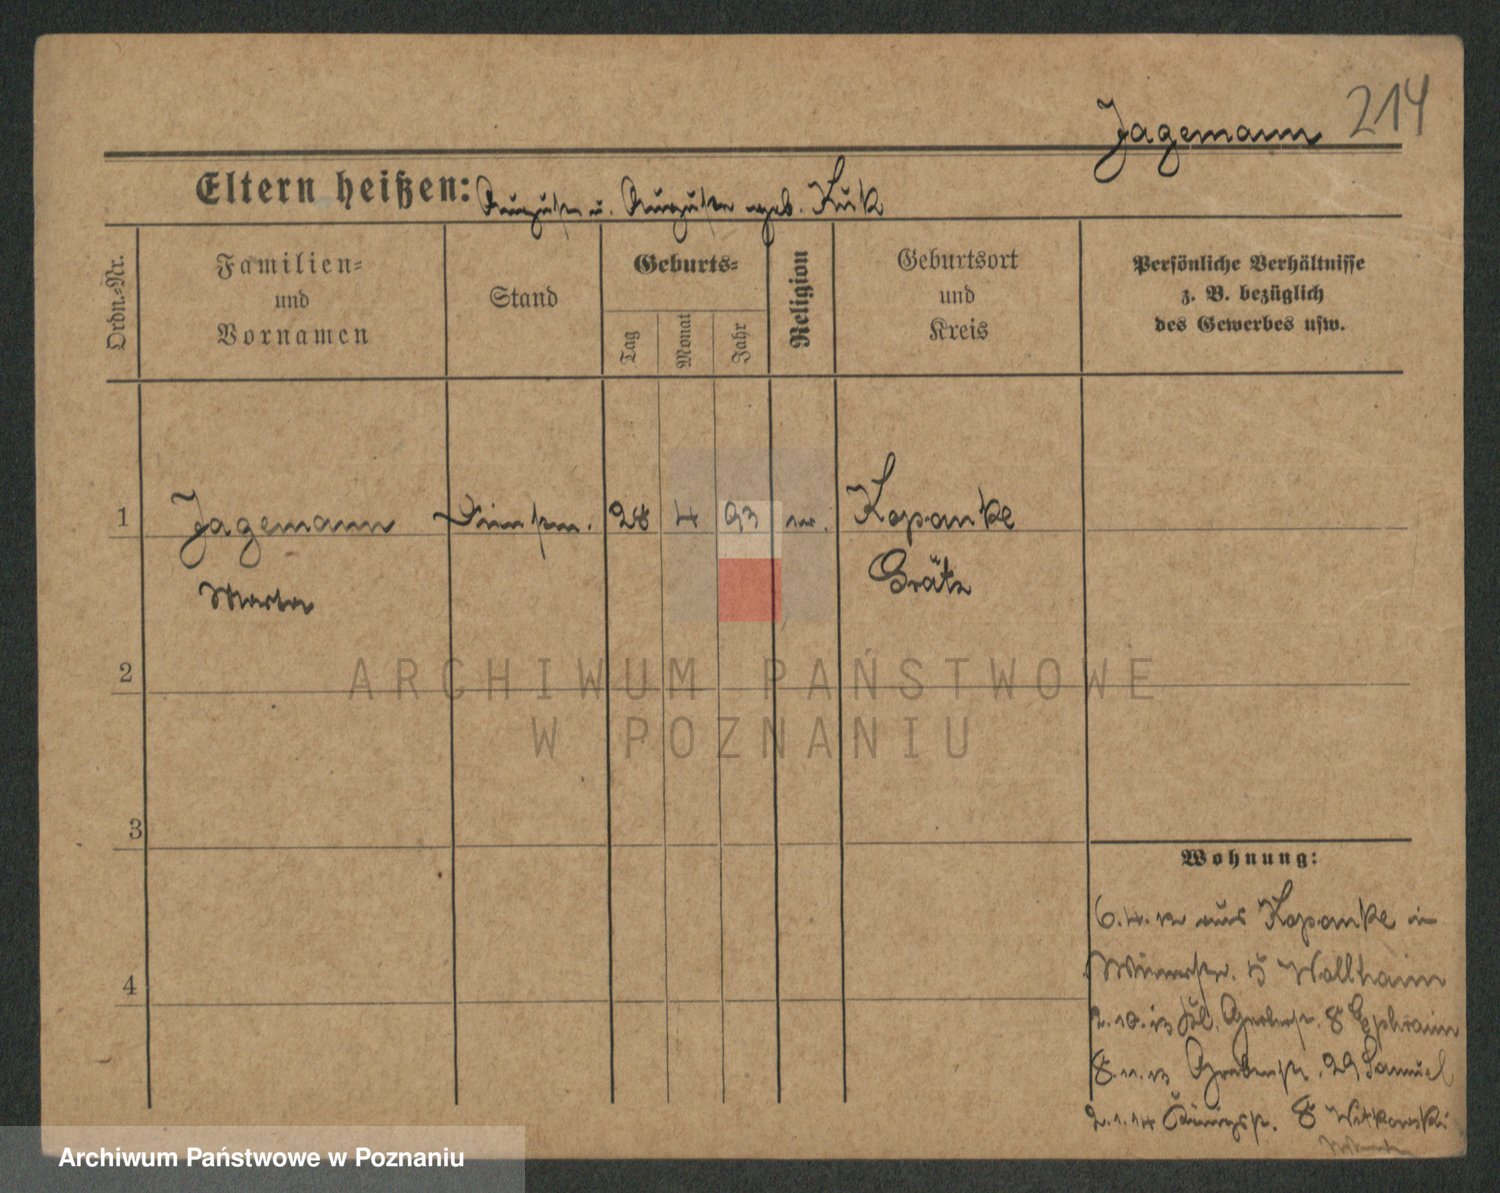 214
Jagemann
Eltern heißen: August u. Auguste geb. Kuk
Ordn.-Nr.
Familien-
und
Vornamen
Stand
Geburts-
Tag
Monat
Jahr
Religion
Geburtsort
und
Kreis
Persönliche Verhältnisse
z. B. bezüglich
des Gewerbes usw.
1 Jagemann 28 4 93 Kopanke
Marta Grätz
2
ARCHIWUM PAŃSTWOWE
W POZNANIU
3
4
Wohnung:
6.4. aus Kopanke in
5 Wollheim
2.10.13 Kl. Gerberstr. 8 Ephraim
8.11.13 Grabenstr. 29 Samuel
2.1.14 Königstr. 8 Witkowski
Archiwum Państwowe w Poznaniu